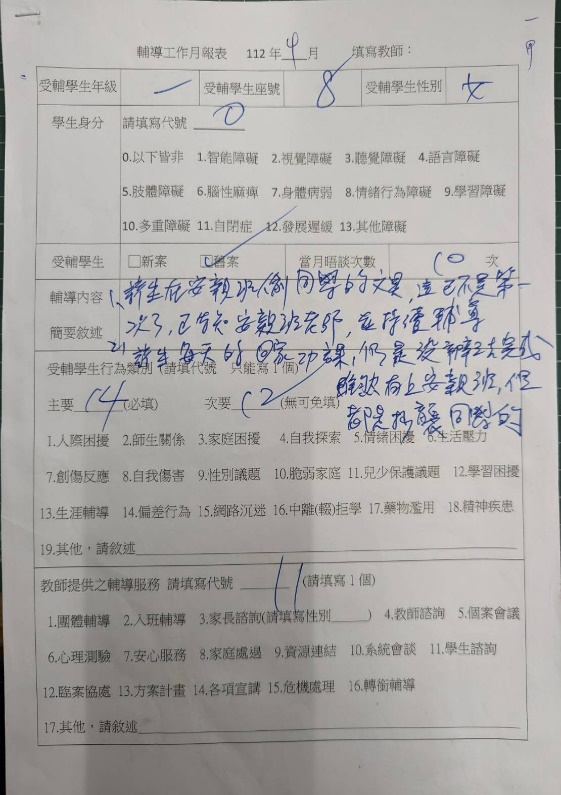 一甲
輔導工作月報表 112 年 4 月 填寫教師：
受輔學生年級 一 受輔學生座號 8 受輔學生性別 女
學生身分 請填寫代號 0
0.以下皆非 1.智能障礙 2.視覺障礙 3.聽覺障礙 4.語言障礙
5.肢體障礙 6.腦性麻痺 7.身體病弱 8.情緒行為障礙 9.學習障礙
10.多重障礙 11.自閉症 12.發展遲緩 13.其他障礙
受輔學生 □新案 □舊案 當月晤談次數 10 次
輔導內容
簡要敘述
1、該生在安親班偷同學的文具，這已不是第一
次了，已告知安親班老師，並持續輔導
2、該生每天的回家功課，仍是沒辦法完成
雖說有上安親班，但
都是抄襲同學的
受輔學生行為類別（請填代號 只能寫1個）
主要 14 (必填) 次要 12 (無可免填)
1.人際困擾 2.師生關係 3.家庭困擾 4.自我探索 5.情緒困擾 6.生活壓力
7.創傷反應 8.自我傷害 9.性別議題 10.脆弱家庭 11.兒少保護議題 12.學習困擾
13.生涯輔導 14.偏差行為 15.網路沉迷 16.中離(輟)拒學 17.藥物濫用 18.精神疾患
19.其他，請敘述
教師提供之輔導服務 請填寫代號 11 (請填寫1個)
1.團體輔導 2.入班輔導 3.家長諮詢(請填寫性別 ) 4.教師諮詢 5.個案會議
6.心理測驗 7.安心服務 8.家庭處遇 9.資源連結 10.系統會談 11.學生諮詢
12.臨案協處 13.方案計畫 14.各項宣講 15.危機處理 16.轉銜輔導
17.其他，請敘述